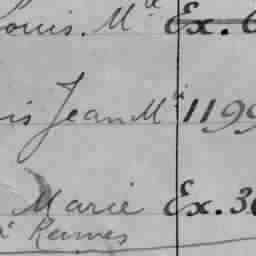 Louis. Mie Ex.
is Jean Mie 1199
Marie Ex. 36
à Rennes